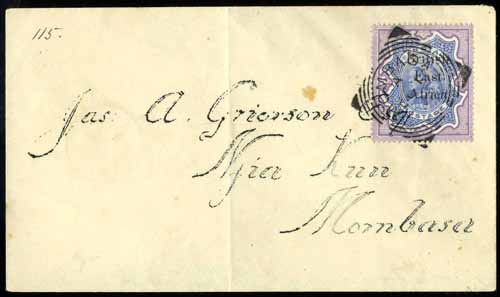 115.
British
East
Africa
MOMBASA
Jas. A. Grierson
Njia Kuu
Mombasa